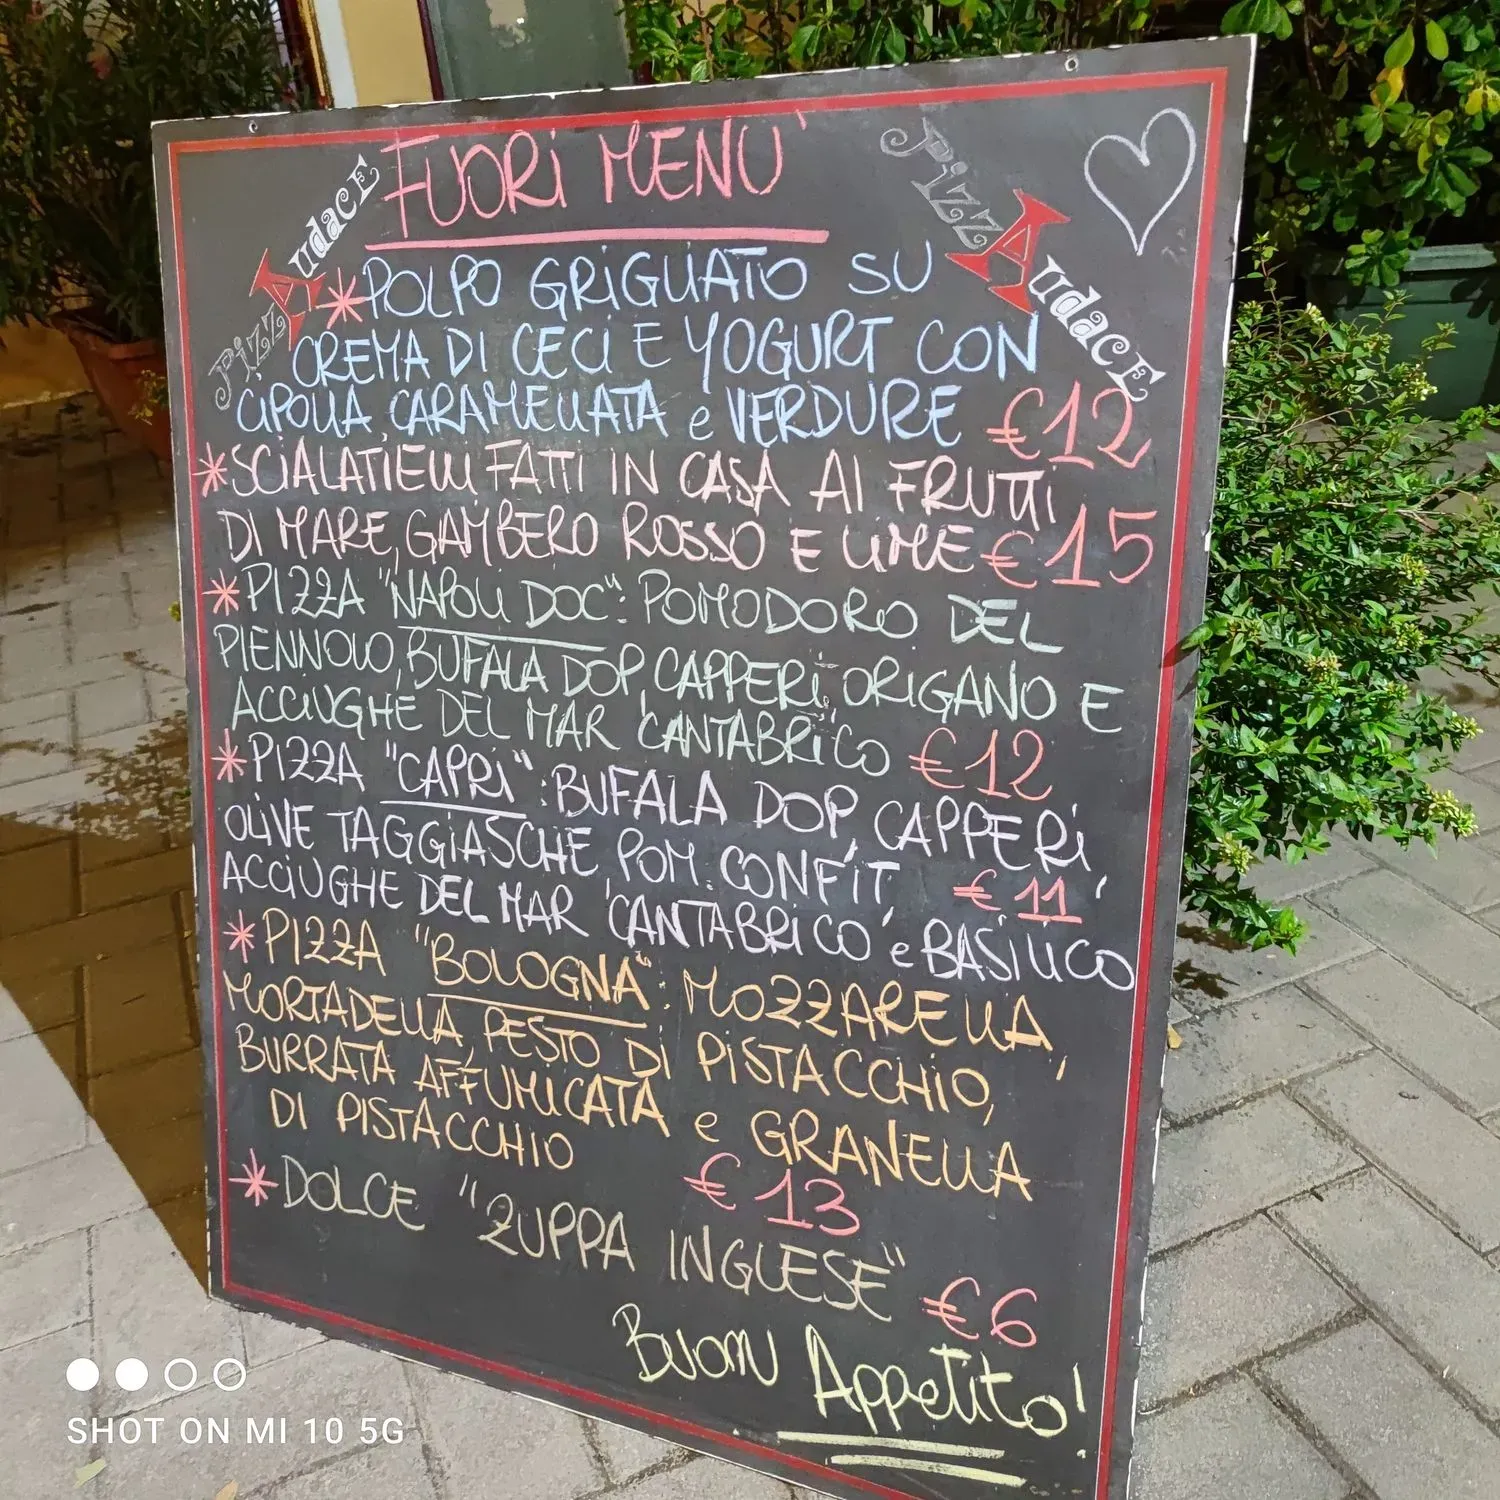 FUORI MENU'
PizzAudacE
PizzAudacE
*POLPO GRIGLIATO SU
CREMA DI CECI E YOGURT CON
CIPOLLA CARAMELLATA e VERDURE €12
*SCIALATIELLI FATTI IN CASA AI FRUTTI
DI MARE, GAMBERO ROSSO E LIME €15
*PIZZA "NAPOLI DOC": POMODORO DEL
PIENNOLO, BUFALA DOP, CAPPERI, ORIGANO E
ACCIUGHE DEL MAR CANTABRICO €12
*PIZZA "CAPRI": BUFALA DOP, CAPPERI,
OLIVE TAGGIASCHE, POM. CONFIT, €11
ACCIUGHE DEL MAR CANTABRICO e BASILICO
*PIZZA "BOLOGNA": MOZZARELLA,
MORTADELLA, PESTO DI PISTACCHIO,
BURRATA AFFUMICATA e GRANELLA
DI PISTACCHIO
€13
*DOLCE "ZUPPA INGLESE" €6
BUON APPETITO!
SHOT ON MI 10 5G